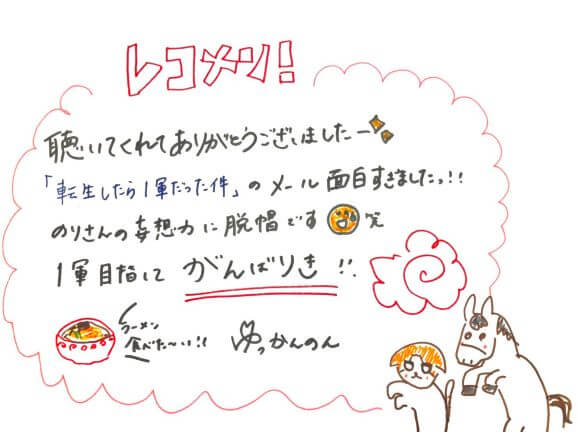 レコメン!
聴いてくれてありがとうございましたー
「転生したら1軍だった件」のメール面白すぎましたっ!!
のりさんの妄想力に脱帽です 笑
1軍目指して がんばりき!!
ラーメン
食べた〜い!!
ゆっかんのん